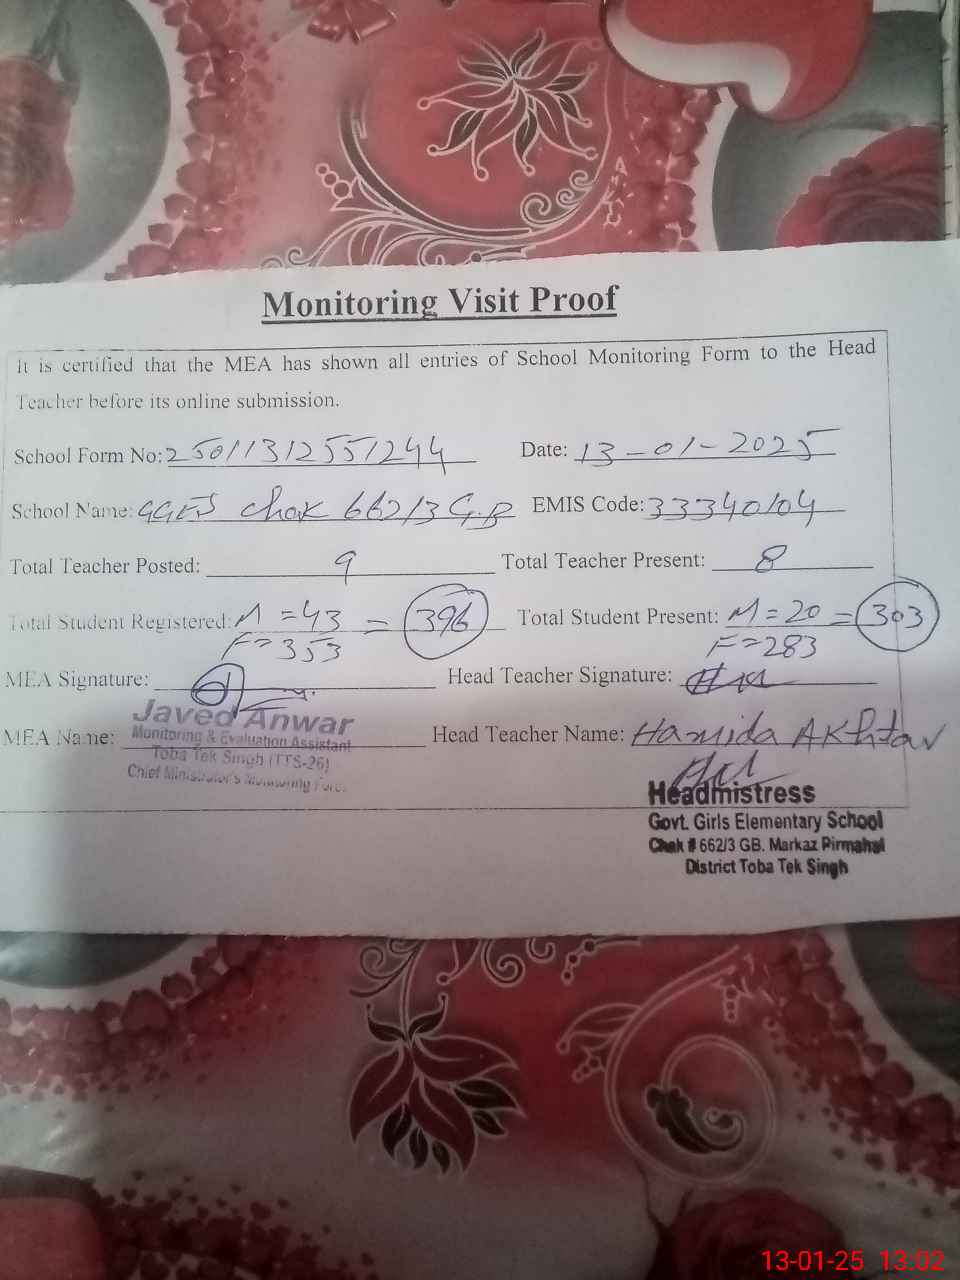 Monitoring Visit Proof
It is certified that the MEA has shown all entries of School Monitoring Form to the Head
Teacher before its online submission.
School Form No: 25011312551244 Date: 13-01-2025
School Name: GGES Chak 662/3 G.B EMIS Code: 33340104
Total Teacher Posted: 9 Total Teacher Present: 8
Total Student Registered: M = 43 = 396 Total Student Present: M = 20 = 303
F = 353 F = 283
MEA Signature: Head Teacher Signature:
Javed Anwar
MEA Name: Monitoring & Evaluation Assistant Head Teacher Name: Hamida Akhtar
Toba Tek Singh (TTS-26)
Chief Minister's Monitoring Force
Headmistress
Govt. Girls Elementary School
Chak # 662/3 GB. Markaz Pirmahal
District Toba Tek Singh
13-01-25 13:02